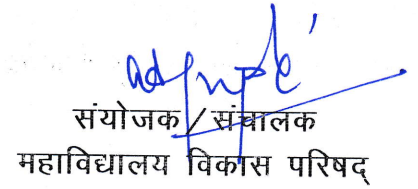 संयोजक/संचालक
महाविद्यालय विकास परिषद्